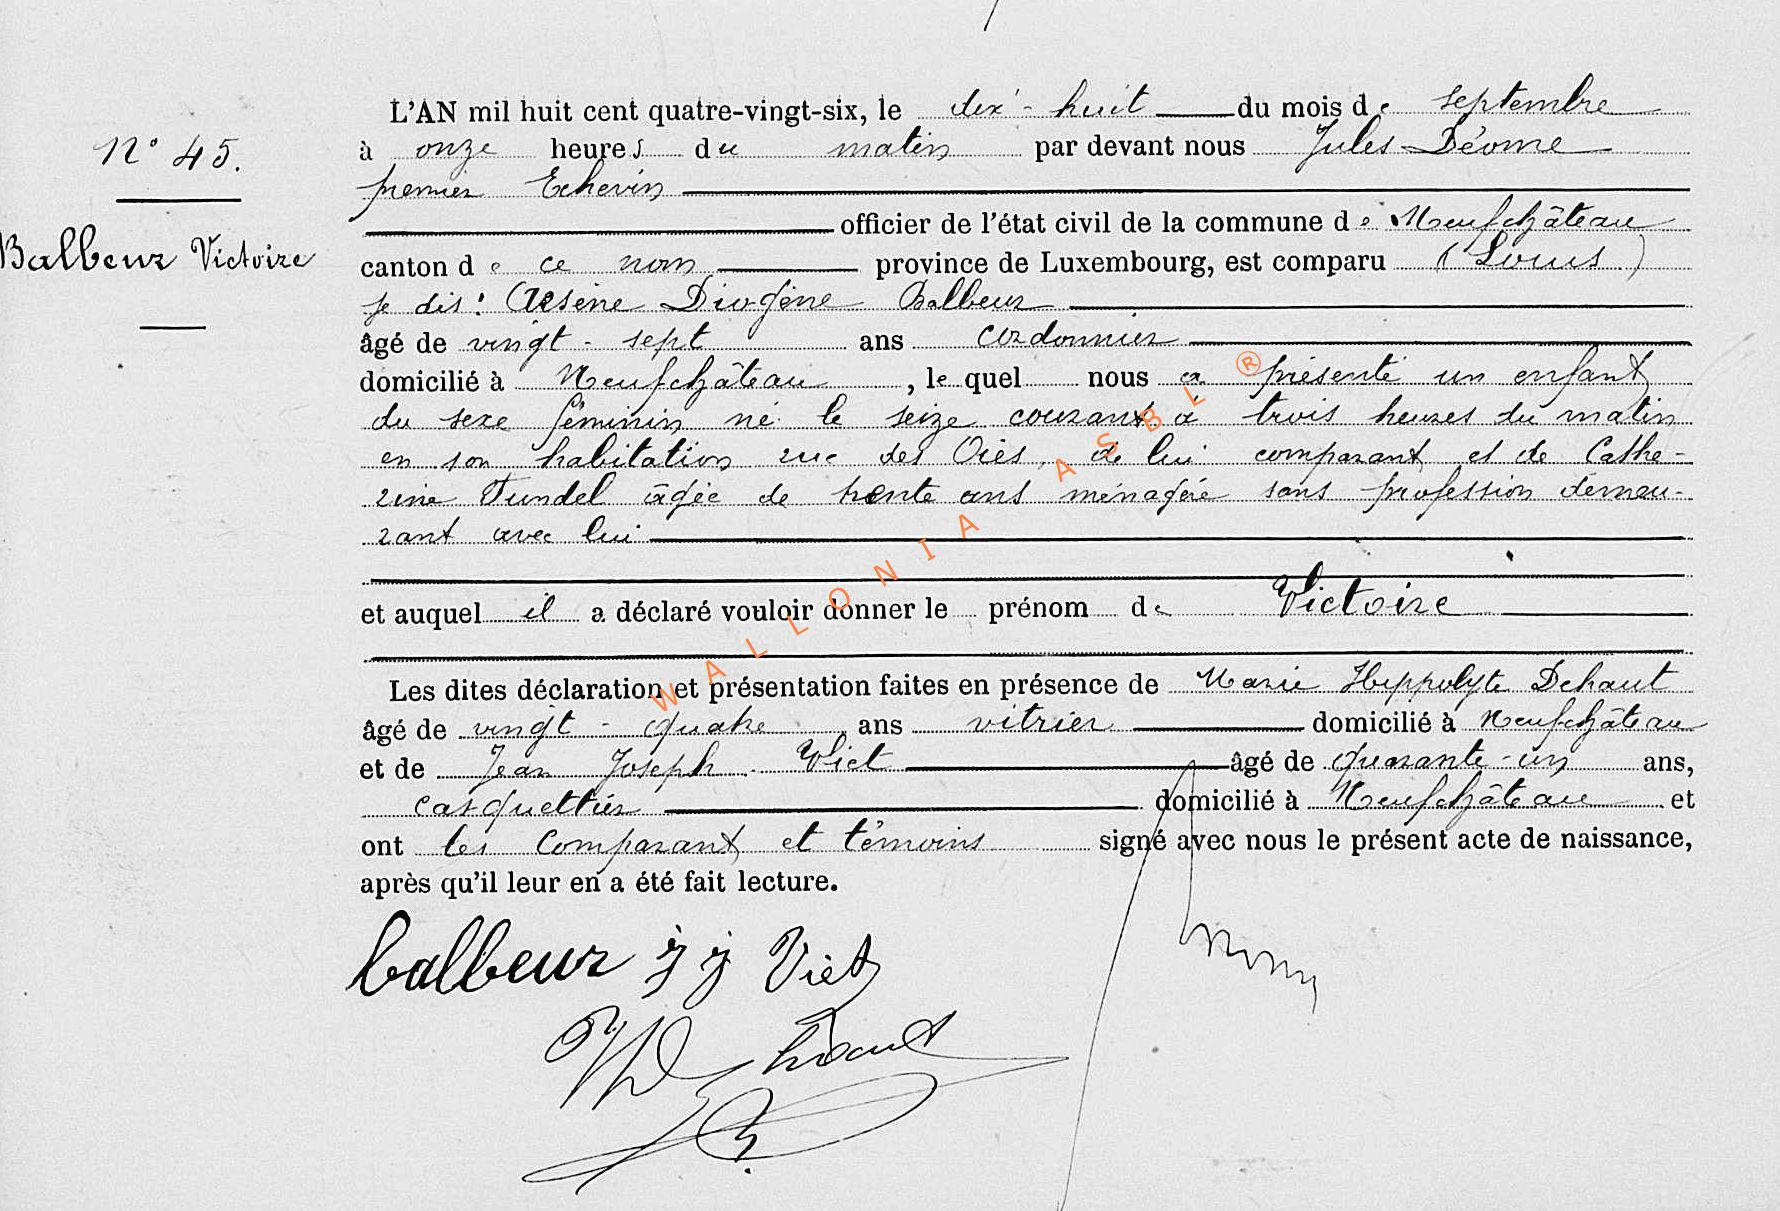 N° 45.
Balbeur Victoire
L'AN mil huit cent quatre-vingt-six, le dix-huit du mois de septembre
à onze heures du matin par devant nous Jules Déome
premier Echevin
officier de l'état civil de la commune de Neufchâteau
canton de ce nom province de Luxembourg, est comparu (Louis)
je dis: Arsène Diogène Balbeur
âgé de vingt-sept ans cordonnier
domicilié à Neufchâteau, lequel nous a présenté un enfant
du sexe féminin né le seize courant à trois heures du matin
en son habitation rue des Oies, de lui comparant et de Cathe-
rine Tundel âgée de trente ans ménagère sans profession demeu-
rant avec lui
et auquel il a déclaré vouloir donner le prénom de Victoire
Les dites déclaration et présentation faites en présence de Marie Hippolyte Dehaut
âgé de vingt-quatre ans vitrier domicilié à Neufchâteau
et de Jean Joseph Viet âgé de quarante-un ans,
casquettier domicilié à Neufchâteau et
ont les comparant et témoins signé avec nous le présent acte de naissance,
après qu'il leur en a été fait lecture.
balbeur j j Viet
WALLONIA ASBL ®